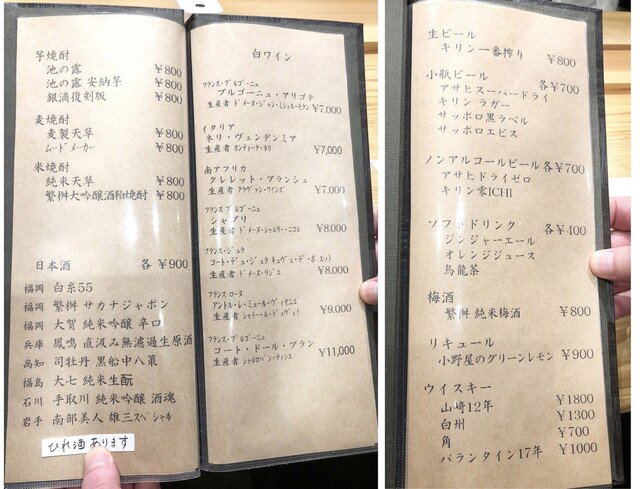 芋焼酎
池の露 ¥800
池の露 安納芋 ¥800
銀滴復刻版 ¥800
麦焼酎
麦製天草 ¥800
ムードメーカー ¥800
米焼酎
純米天草 ¥800
繁桝大吟醸酒粕焼酎 ¥800
日本酒 各 ¥900
福岡 白糸55
福岡 繁桝 サカナジャポン
福岡 大賀 純米吟醸 辛口
兵庫 鳳鳴 直汲み無濾過生原酒
高知 司牡丹 黒船中八策
福島 大七 純米生酛
石川 手取川 純米吟醸 酒魂
岩手 南部美人 雄三スペシャル
ひれ酒あります
白ワイン
フランス・ブルゴーニュ
ブルゴーニュ・アリゴテ
生産者 ドメーヌ・ジャン・ミシェル・モラン ¥7,000
イタリア
ネリ・ヴェンデンミア
生産者 カンティーナ・ネリ ¥7,000
南アフリカ
クレレット・ブランシュ
生産者 クラヴァン・ワインズ ¥7,000
フランス ブルゴーニュ
シャブリ
生産者 ドメーヌ・シャルリー・ニコル ¥8,000
フランス・ジュラ
コート・デュ・ジュラ キュヴェ・デ・
生産者 ドメーヌ・リジエ ¥8,000
フランス ローヌ
アントル・レ・ミュール・ヴィオニエ
生産者 シャトー・ル・ ¥9,000
フランス・ブルゴーニュ
コート・ドール・ブラン
生産者 シャルロパン・ティシエ ¥11,000
生ビール
キリン一番搾り ¥800
小瓶ビール 各¥700
アサヒスーパードライ
キリン ラガー
サッポロ黒ラベル
サッポロエビス
ノンアルコールビール 各¥700
アサヒドライゼロ
キリン零ICHI
ソフトドリンク 各¥400
ジンジャーエール
オレンジジュース
烏龍茶
梅酒
繁桝 純米梅酒 ¥800
リキュール
小野屋のグリーンレモン ¥900
ウイスキー
山崎12年 ¥1800
白州 ¥1300
角 ¥700
バランタイン17年 ¥1000